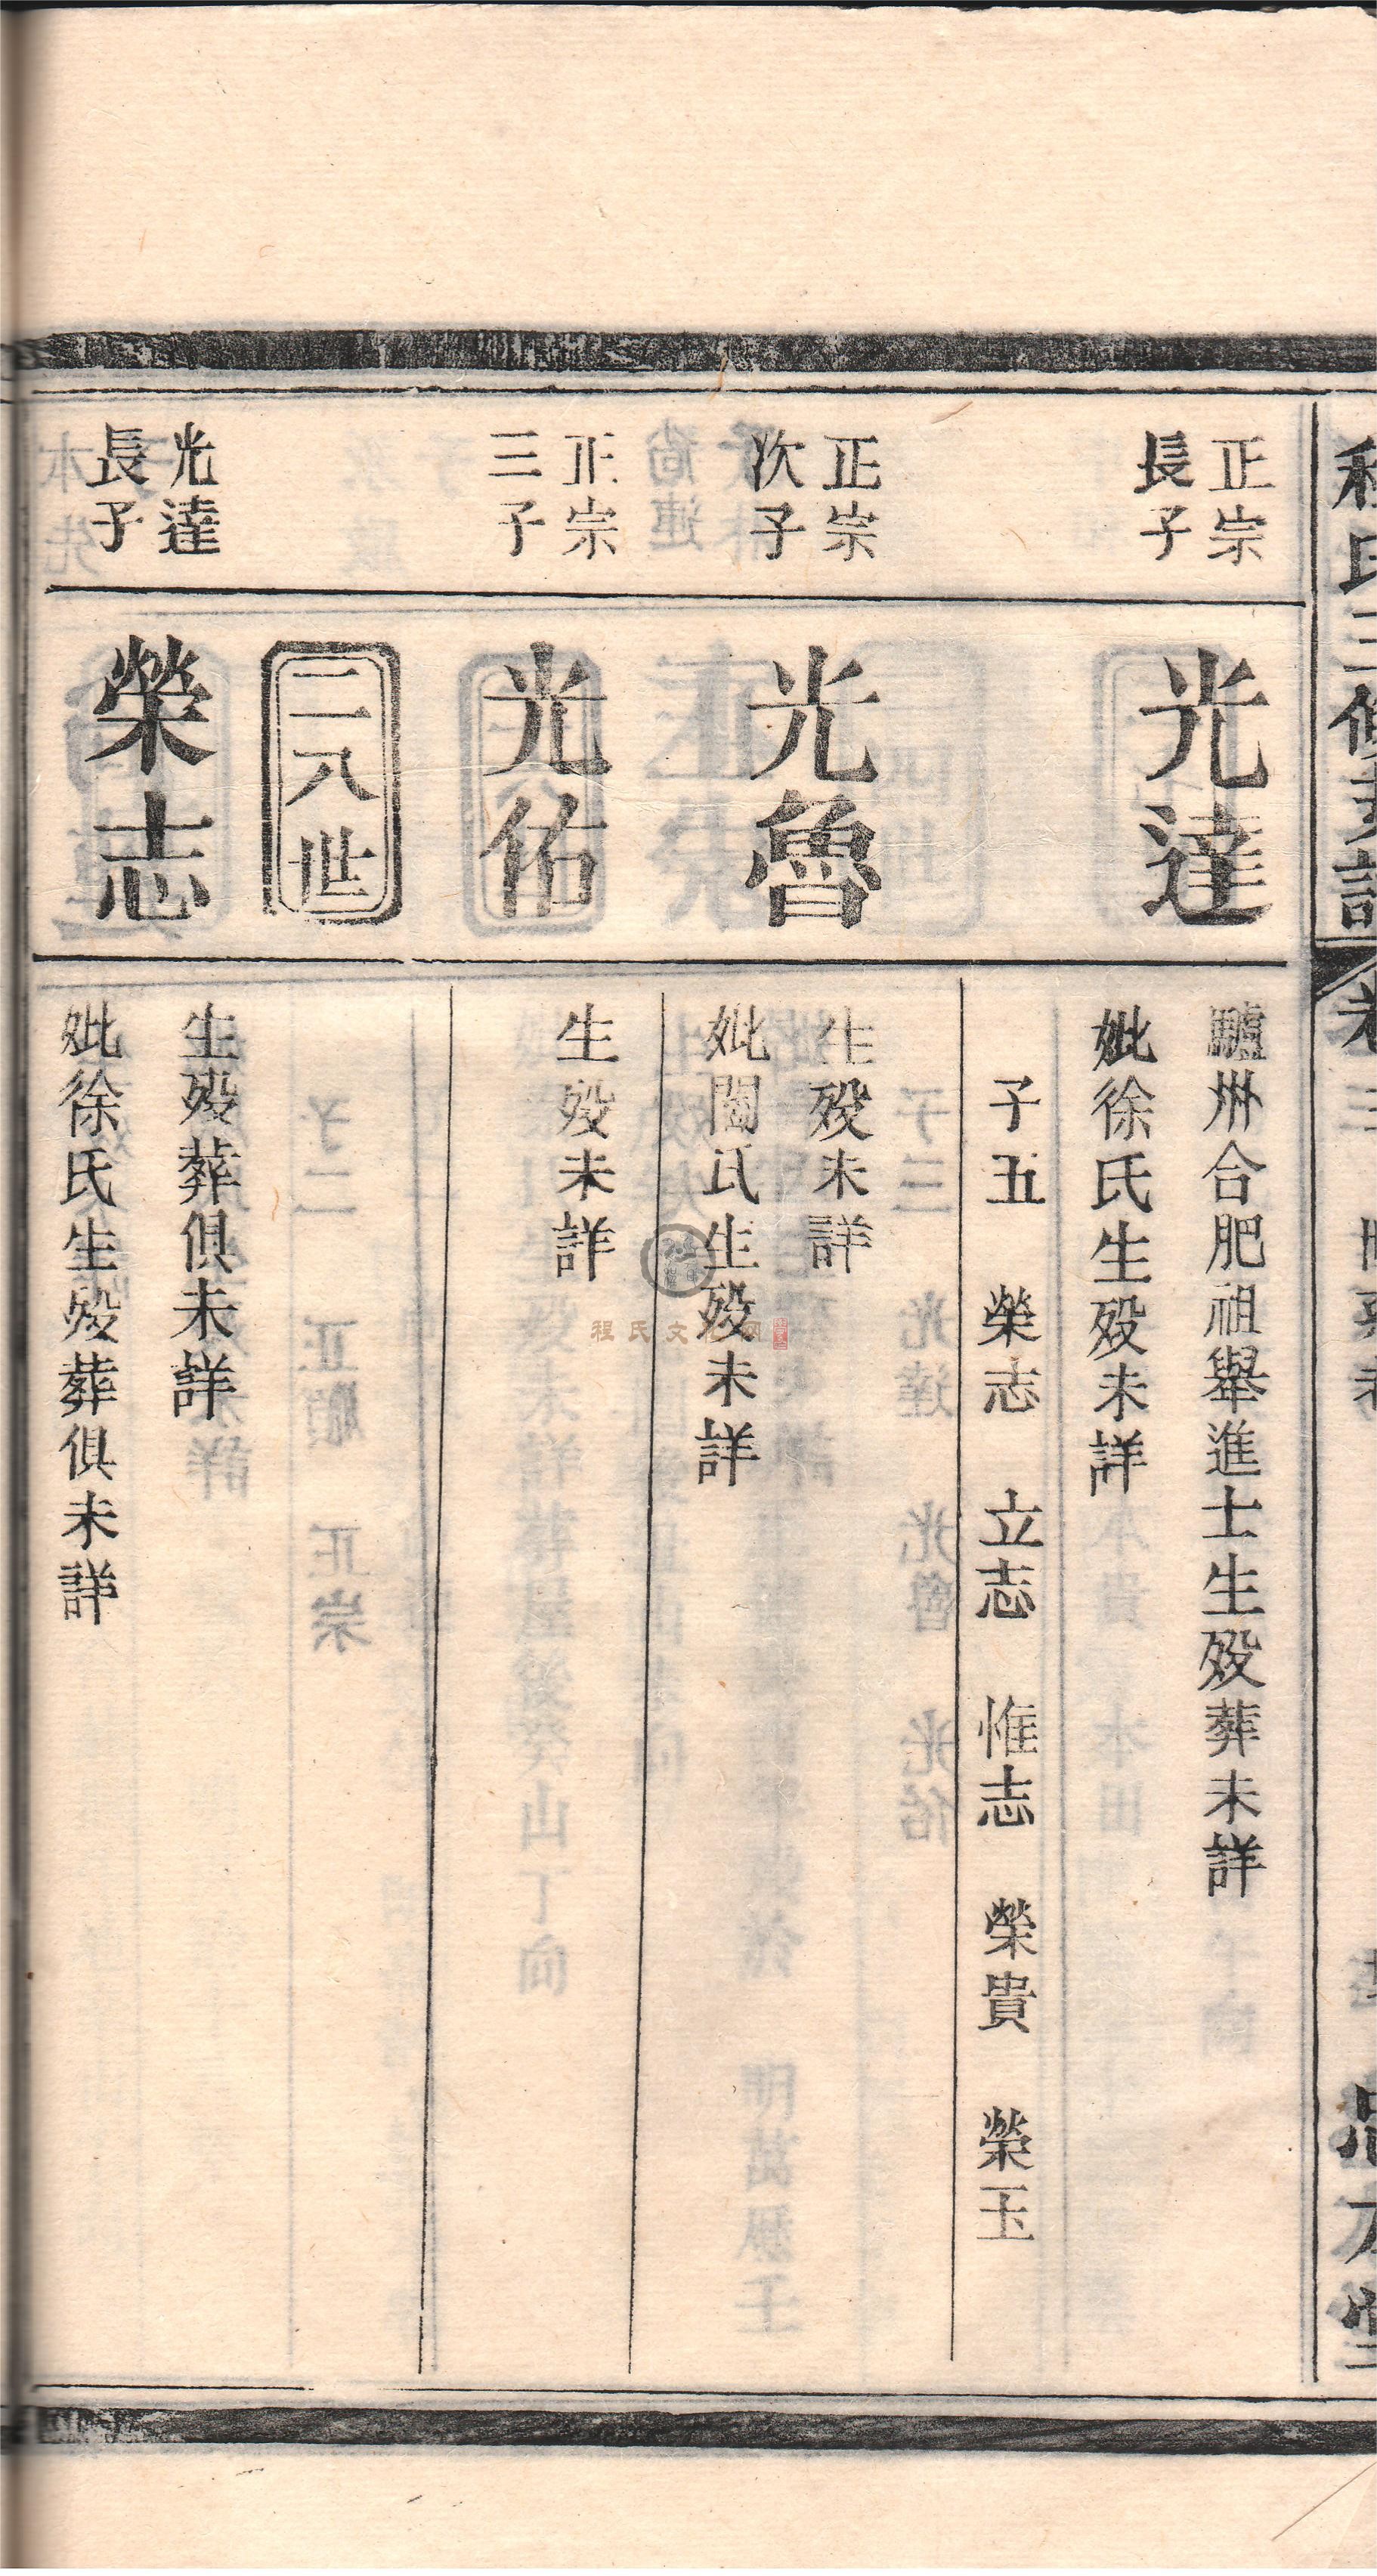 正宗
長子
光達
驢州合肥祖舉進士生歿葬未詳
妣徐氏生歿未詳
子五 榮志 立志 惟志 榮貴 榮玉
正宗
次子
光魯
生歿未詳
妣閻氏生歿未詳
正宗
三子
光佑
生歿未詳
二八世
光達
長子
榮志
生歿葬俱未詳
妣徐氏生歿葬俱未詳
程氏文化网